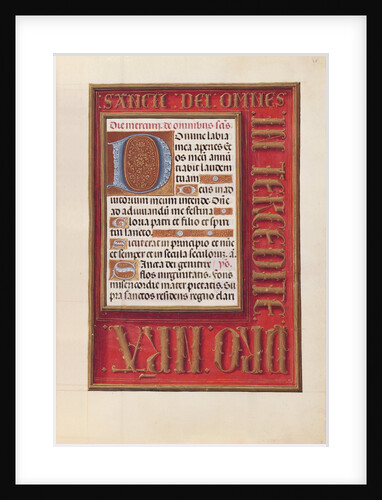 SANCTI DEI OMNES
INTERCEDITE
PRO NRA
Die mercurii de omnibus scis
Domine labia
mea aperies Et
os meū annū
tiabit laudem
tuam
Deus in ad
iutorium meum intende. Dñe
ad adiuvandū me festina
Gloria patri et filio et spiri
tui sancto
Sicut erat in principio et nūc
et semper et in secula seculorū. a.
Sancta dei genitrix
flos virginitatis. Fons
misericordie mater pietatis. Su
pra sanctos residens regno clari